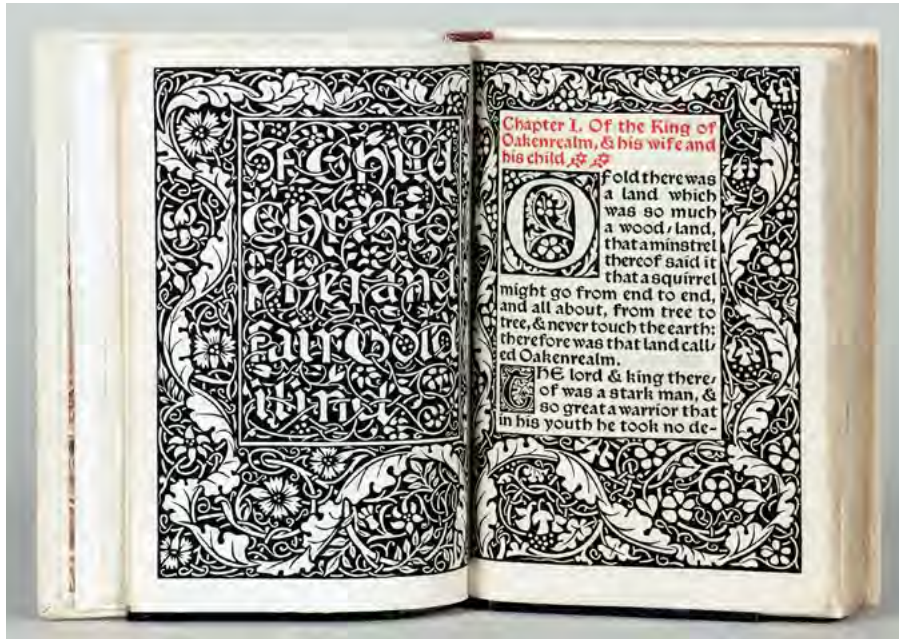 Of Child
Christo
pher and
Fair Gold
ilind
Chapter I. Of the King of
Oakenrealm, & his wife and
his child
Of old there was
a land which
was so much
a wood-land,
that a minstrel
thereof said it
that a squirrel
might go from end to end,
and all about, from tree to
tree, & never touch the earth:
therefore was that land call-
ed Oakenrealm.
THE lord & king there-
of was a stark man, &
so great a warrior that
in his youth he took no de-